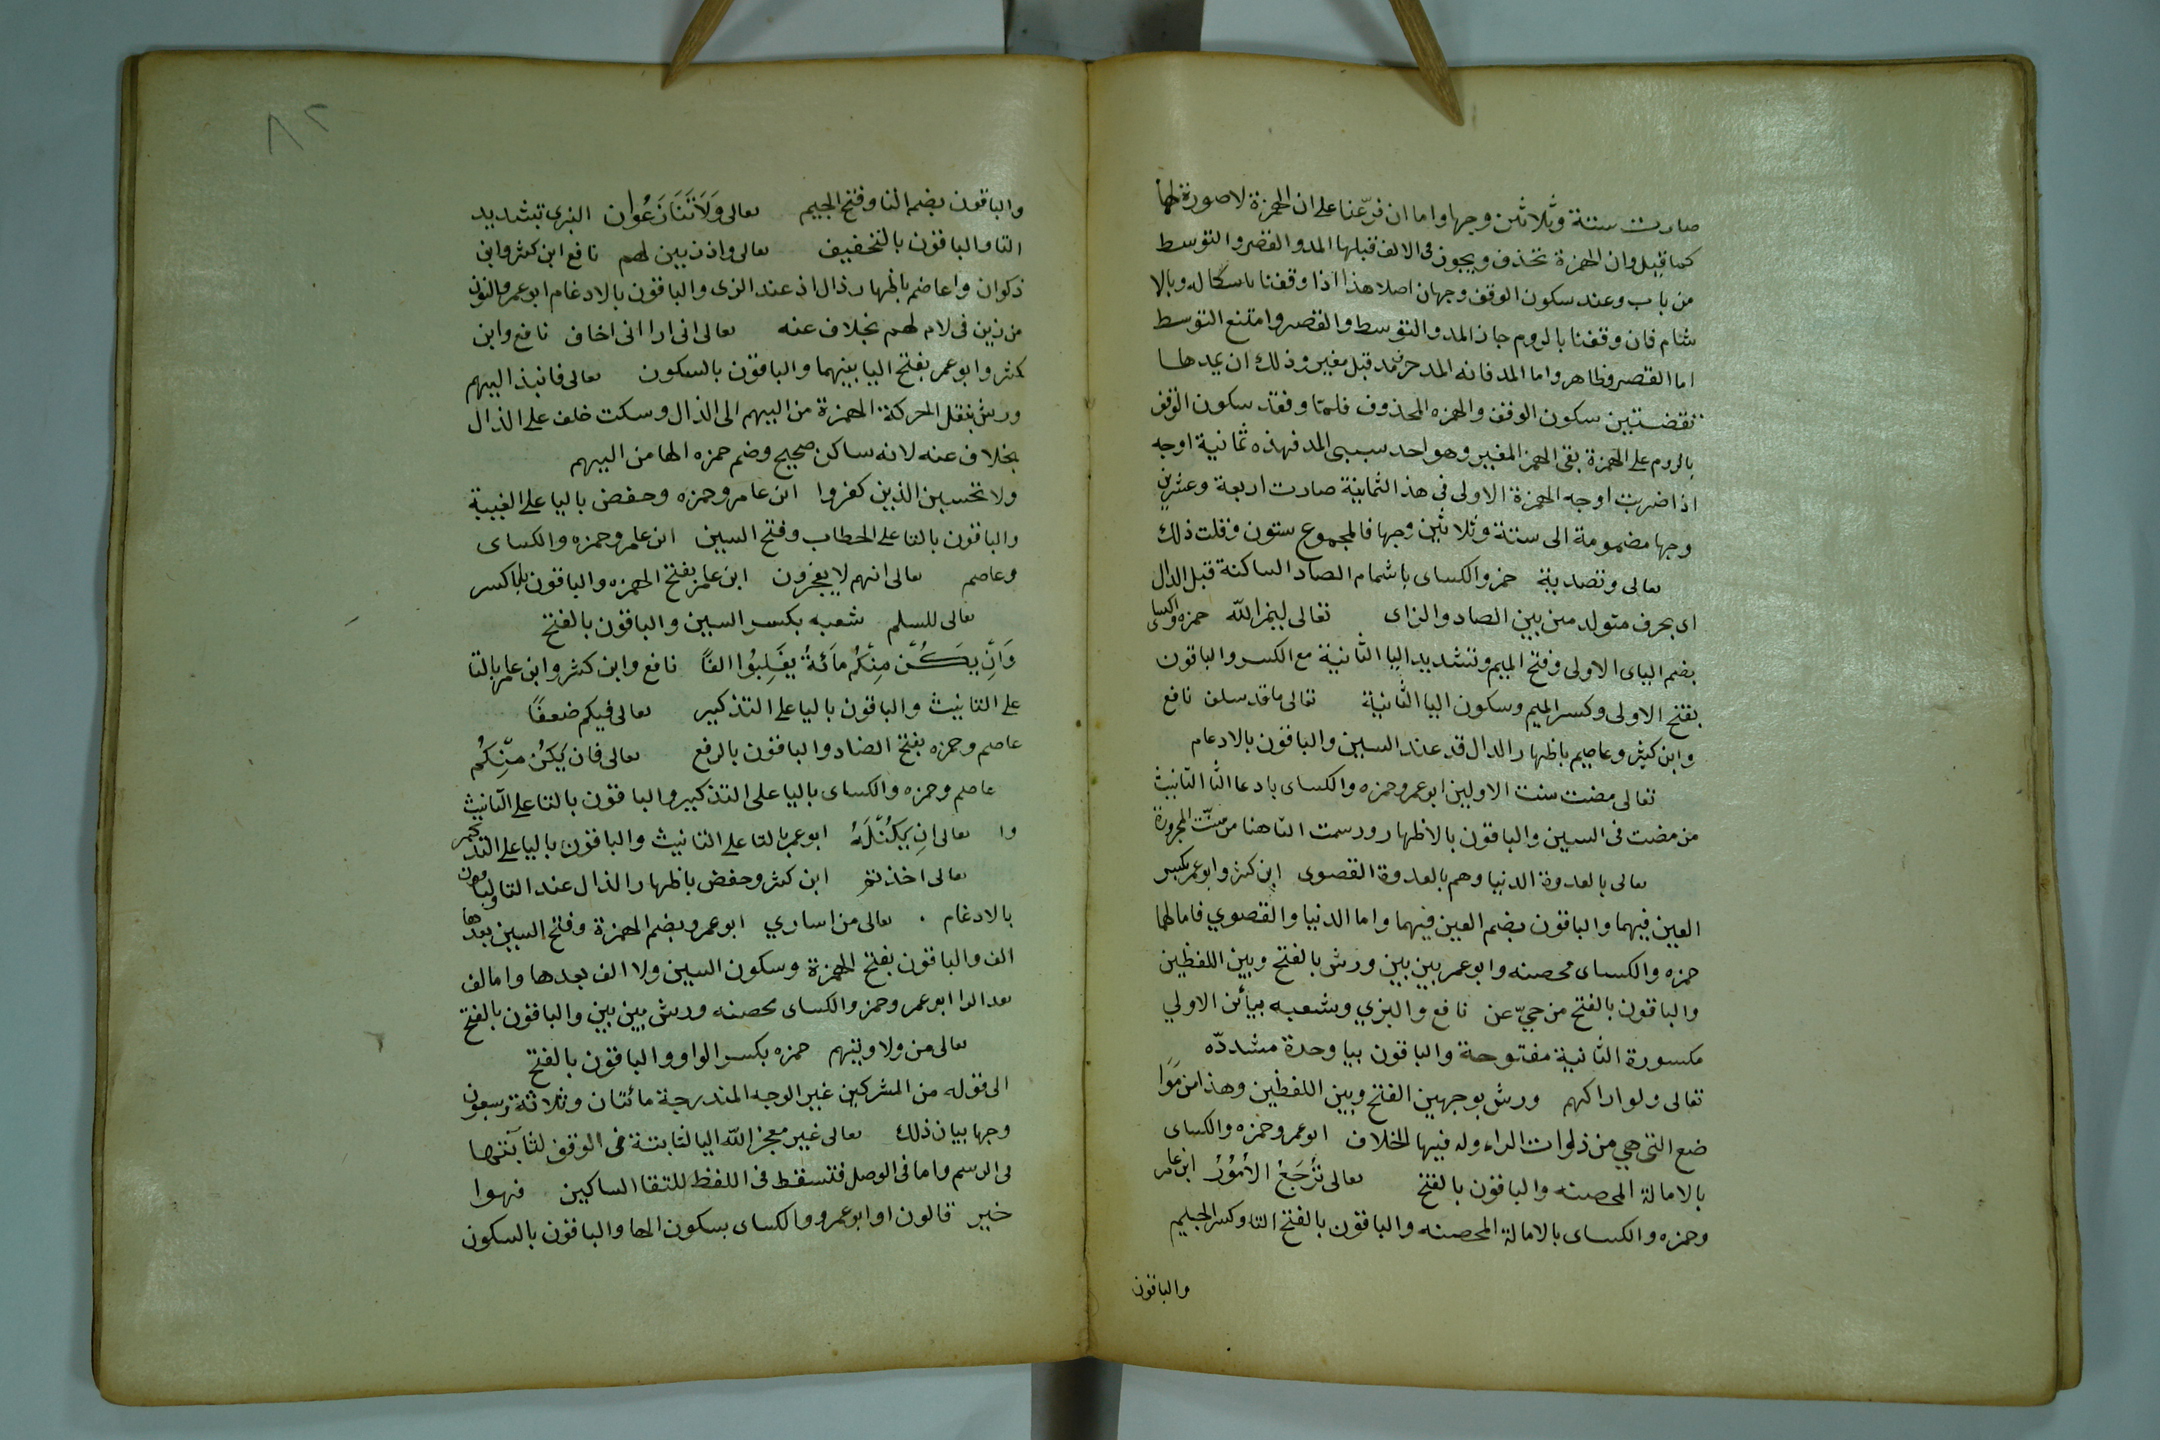 صارت ستة وثلاثين وجها واما ان فرّعنا على ان الهمزة لا صورة لها
كما قيل وان الهمزة تحذف ويجوز فى الالف قبلها المد والقصر والتوسط
من باب وعند سكون الوقف وجهان اصلا هذا اذا وقفنا بالاسكان وبالا
شام فان وقفنا بالروم جاز المد والتوسط والقصر وامتنع التوسط
اما القصر فظاهر واما المد فانه المد حرف مد قبل مغير وذلك ان يمدها
تقضتين سكون الوقف والهمزه المحذوف فلما وفقد سكون الوقف
بالروم على الهمزة بقى الهمز المغيير وهو احد سببى المد فهذه ثمانية اوجه
اذا ضربت اوجه الهمزة الاولى فى هذ الثمانية صارت اربعة وعشرين
وجها مضمومة الى ستة وثلاثين وجها فالمجموع ستون وقلت ذلك
تعالى وتصدية حمز والكساى باشمام الصاد الساكنة قبل الدال
اى بحرف متولد من بين الصاد والزاى تعالى ليمز الله حمزه والكساى
بضم الياى الاولى وفتح الميم وتشديد اليا الثانية مع الكسر والباقون
بفتح الاولى وكسر الميم وسكون اليا الثانية تعالى ما قد سلف نافع
وابن كثير وعاصم باظهار الدال قد عند السين والباقون بالادعام
تعالى مضت سنت الاولين ابو عمر وحمزه والكساى بادعا التا التانيث
من مضت فى السين والباقون بالاظهار ورسمت التا هنا من سنّت المجرورة
تعالى بالعدوة الدنيا وهم بالعدوة القصوى ابن كثر وابو عمر بكسر
العين فيهما والباقون بضم العين فيهما واما الدنيا والقصوي فامالهما
حمزه والكساى محصنه وابو عمر بين بين ورش بالفتح وبين اللفظين
والباقون بالفتح من حيّ عن نافع والبزي وشعبه بيأئن الاولي
مكسورة الثانية مفتوحة والباقون بيا وحدة مشددّه
تعالى ولو اراكهم ورش بوجهين الفتح وبين اللفظين وهذا من مَوَا
ضع التى هي من ذلوات الراء وله فيها الخلاف ابو عمر وحمزه والكساى
بالامالة المحصنه والباقون بالفتح تعالى تُرْجَعُ الأُمُوُرُ ابن عامر
وحمزه والكساى بالامالة المحصنه والباقون بالفتح التا وكسر الجيم
والباقون
٨٢
والباقون بضم التا وفتح الجيم تعالى وَلَاتَنَازَعُوان البزى بتشديد
التا والباقون بالتخفيف تعالى واذ زين لهم نافع ابن كثر وابن
ذكوان واعاصم باظهار ذال اذ عند الزى والباقون بالادغام ابو عمر والنون
من زين فى لام لهم بخلاف عنه تعالى انى ارا انى اخاف نافع وابن
كثر وابو عمر بفتح اليا بينهما والباقون بالسكون تعالى فانبذ اليهم
ورش بنقل الحركة الهمزة من اليهم الى الذال وسكت خلف على الذال
بخلاف عنه لانه ساكن صحيح وضم حمزه الها من اليهم
ولا تحسبن الذين كفروا ابن عامر وحمزه وحفض باليا على الغيبة
والباقون بالتا على الخطاب وفتح السين ابن عامر وحمزه والكساى
وعاصم تعالى انهم لا يعجزون ابن عامر بفتح الهمزه والباقون بالكسر
تعالى للسلم شعبه بكسر السين والباقون بالفتح
وَاَنِْ يَكُنْ مِنْكُمْ مِاَئَةٌ يَغْلِبُوُا الفًا نافع وابن كثر وابن عامر بالتا
على التانيث والباقون باليا على التذكير تعالى فيكم ضعفًا
عاصم وحمزه بفتح الضاد والباقون بالرفع تعالى فان يَكُنْ مِّنْكُم
عاصم وحمزه والكساى باليا على التذكير والباقون بالتا على التانيث
وا تعالى انِ يَكُنْ لَهُ ابو عمر بالتا على التانيث والباقون باليا على التذكير
تعالى اخذتم ابن كثر وحفض باظهار الذال عند التا والباقون
بالادغام . تعالى من اساري ابو عمر وبضم الهمزة وفتح السين بعدها
الف والباقون بفتح الهمزة وسكون السين ولا الف بعدها وامالف
بعد الرا ابو عمر وحمز والكساى محصنه ورش بين بين والباقون بالفتح
تعالى من ولاويتهم حمزه بكسر الواو والباقون بالفتح
الى قوله من المشركين غير الوجه المندرجة مائتان وثلاثة وسبعون
وجها بيان ذلك تعالى غير معجز الله اليا لثابتة فى الوقف لثابتها
فى الرسم واما فى الوصل فتسقط فى اللفظ للتقا الساكين فهوا
خير قالون او ابو عمرو والكساى بسكون الها والباقون بالسكون